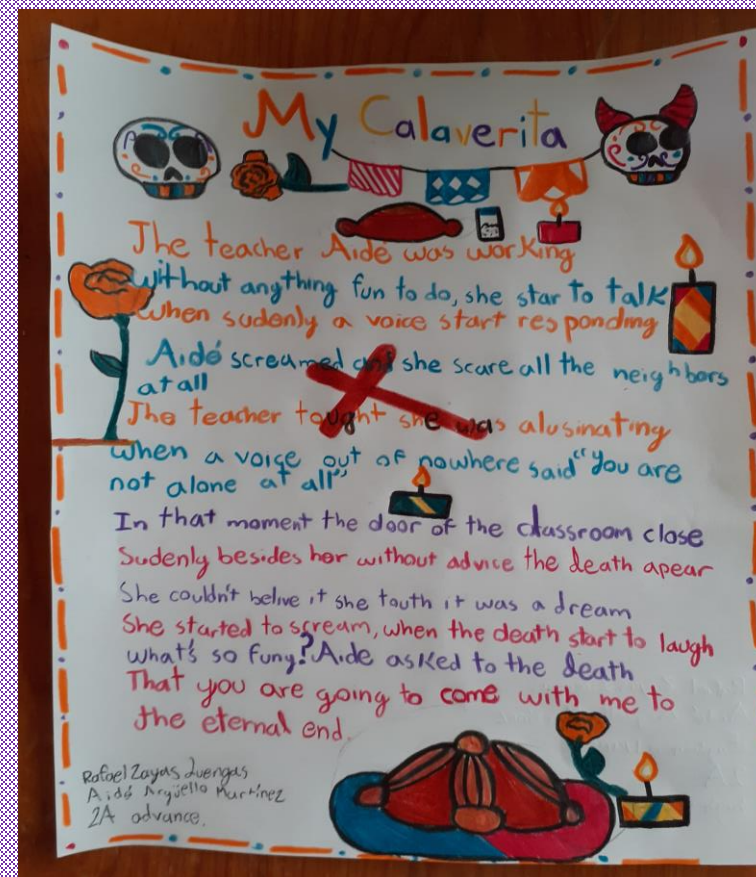 My Calaverita
The teacher Aidé was working
without anything fun to do, she star to talk
when sudenly a voice start responding
Aidé screamed and she scare all the neighbors
at all
The teacher tought she was alusinating
when a voice out of nowhere said "you are
not alone at all"
In that moment the door of the classroom close
Sudenly besides her without advice the death apear
She couldn't belive it she touth it was a dream
She started to scream, when the death start to laugh
what's so funy? Aide asked to the death
That you are going to come with me to
the eternal end.
Rafael Zayas Luengas
Aidé Argüello Martínez
2A advance.